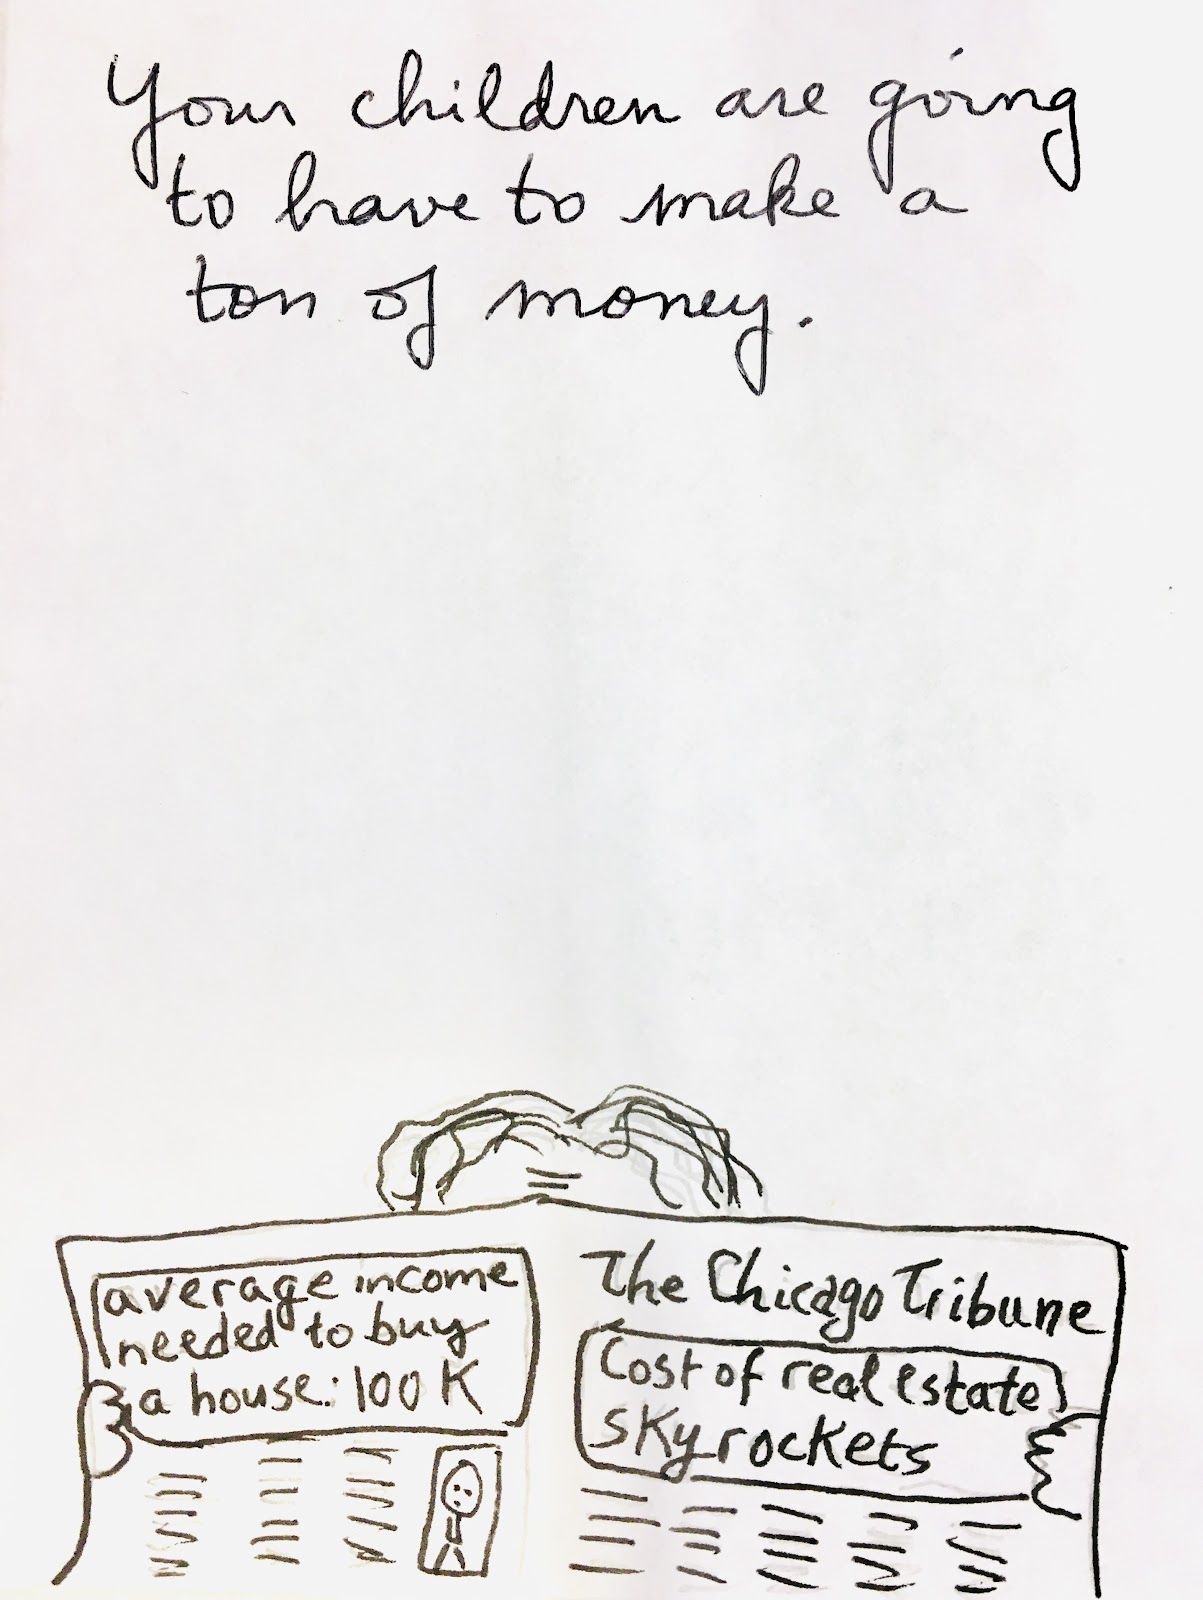 Your children are going
to have to make a
ton of money.
average income
needed to buy
a house: 100K
The Chicago Tribune
Cost of real estate
skyrockets